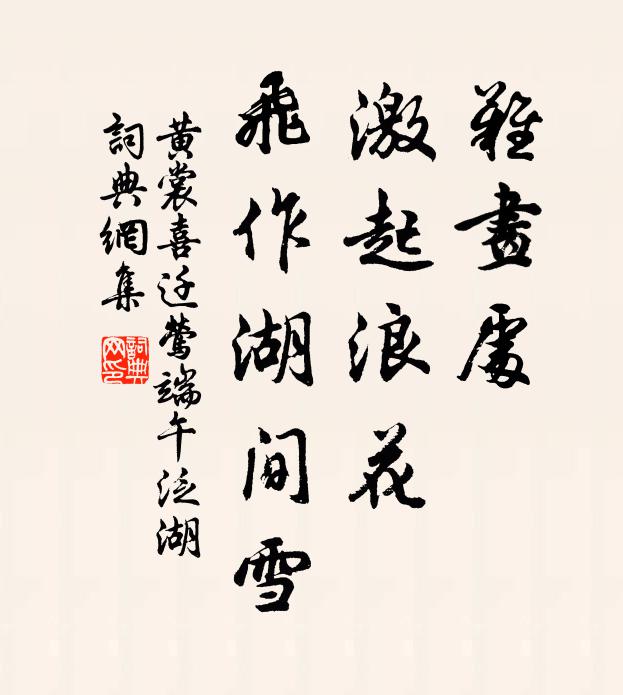 難畫處
激起浪花
飛作湖間雪
黃裳喜迁鶯端午泛湖
詞典網集
詞典網印